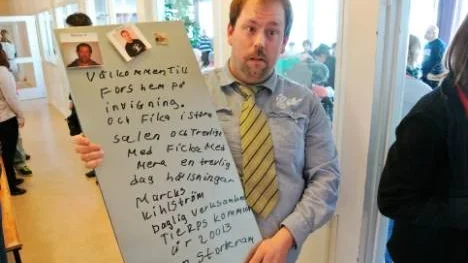 Välkommen Till
Fors hem på
invigning.
och Fika i stora
salen och Trevligt
Med Ficka Med
Mera en trevlig
dag hällsningan
Marcus
Kihlström
Daglig verksamhet
TIERPS Kommun
år 20013
Storkman